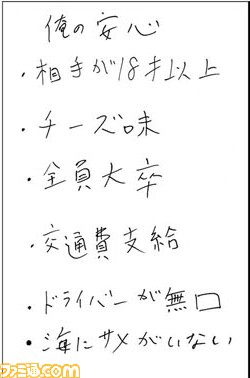 俺の安心
・相手が18才以上
・チーズ味
・全員大卒
・交通費支給
・ドライバーが無口
・海にサメがいない
ファミ通.com